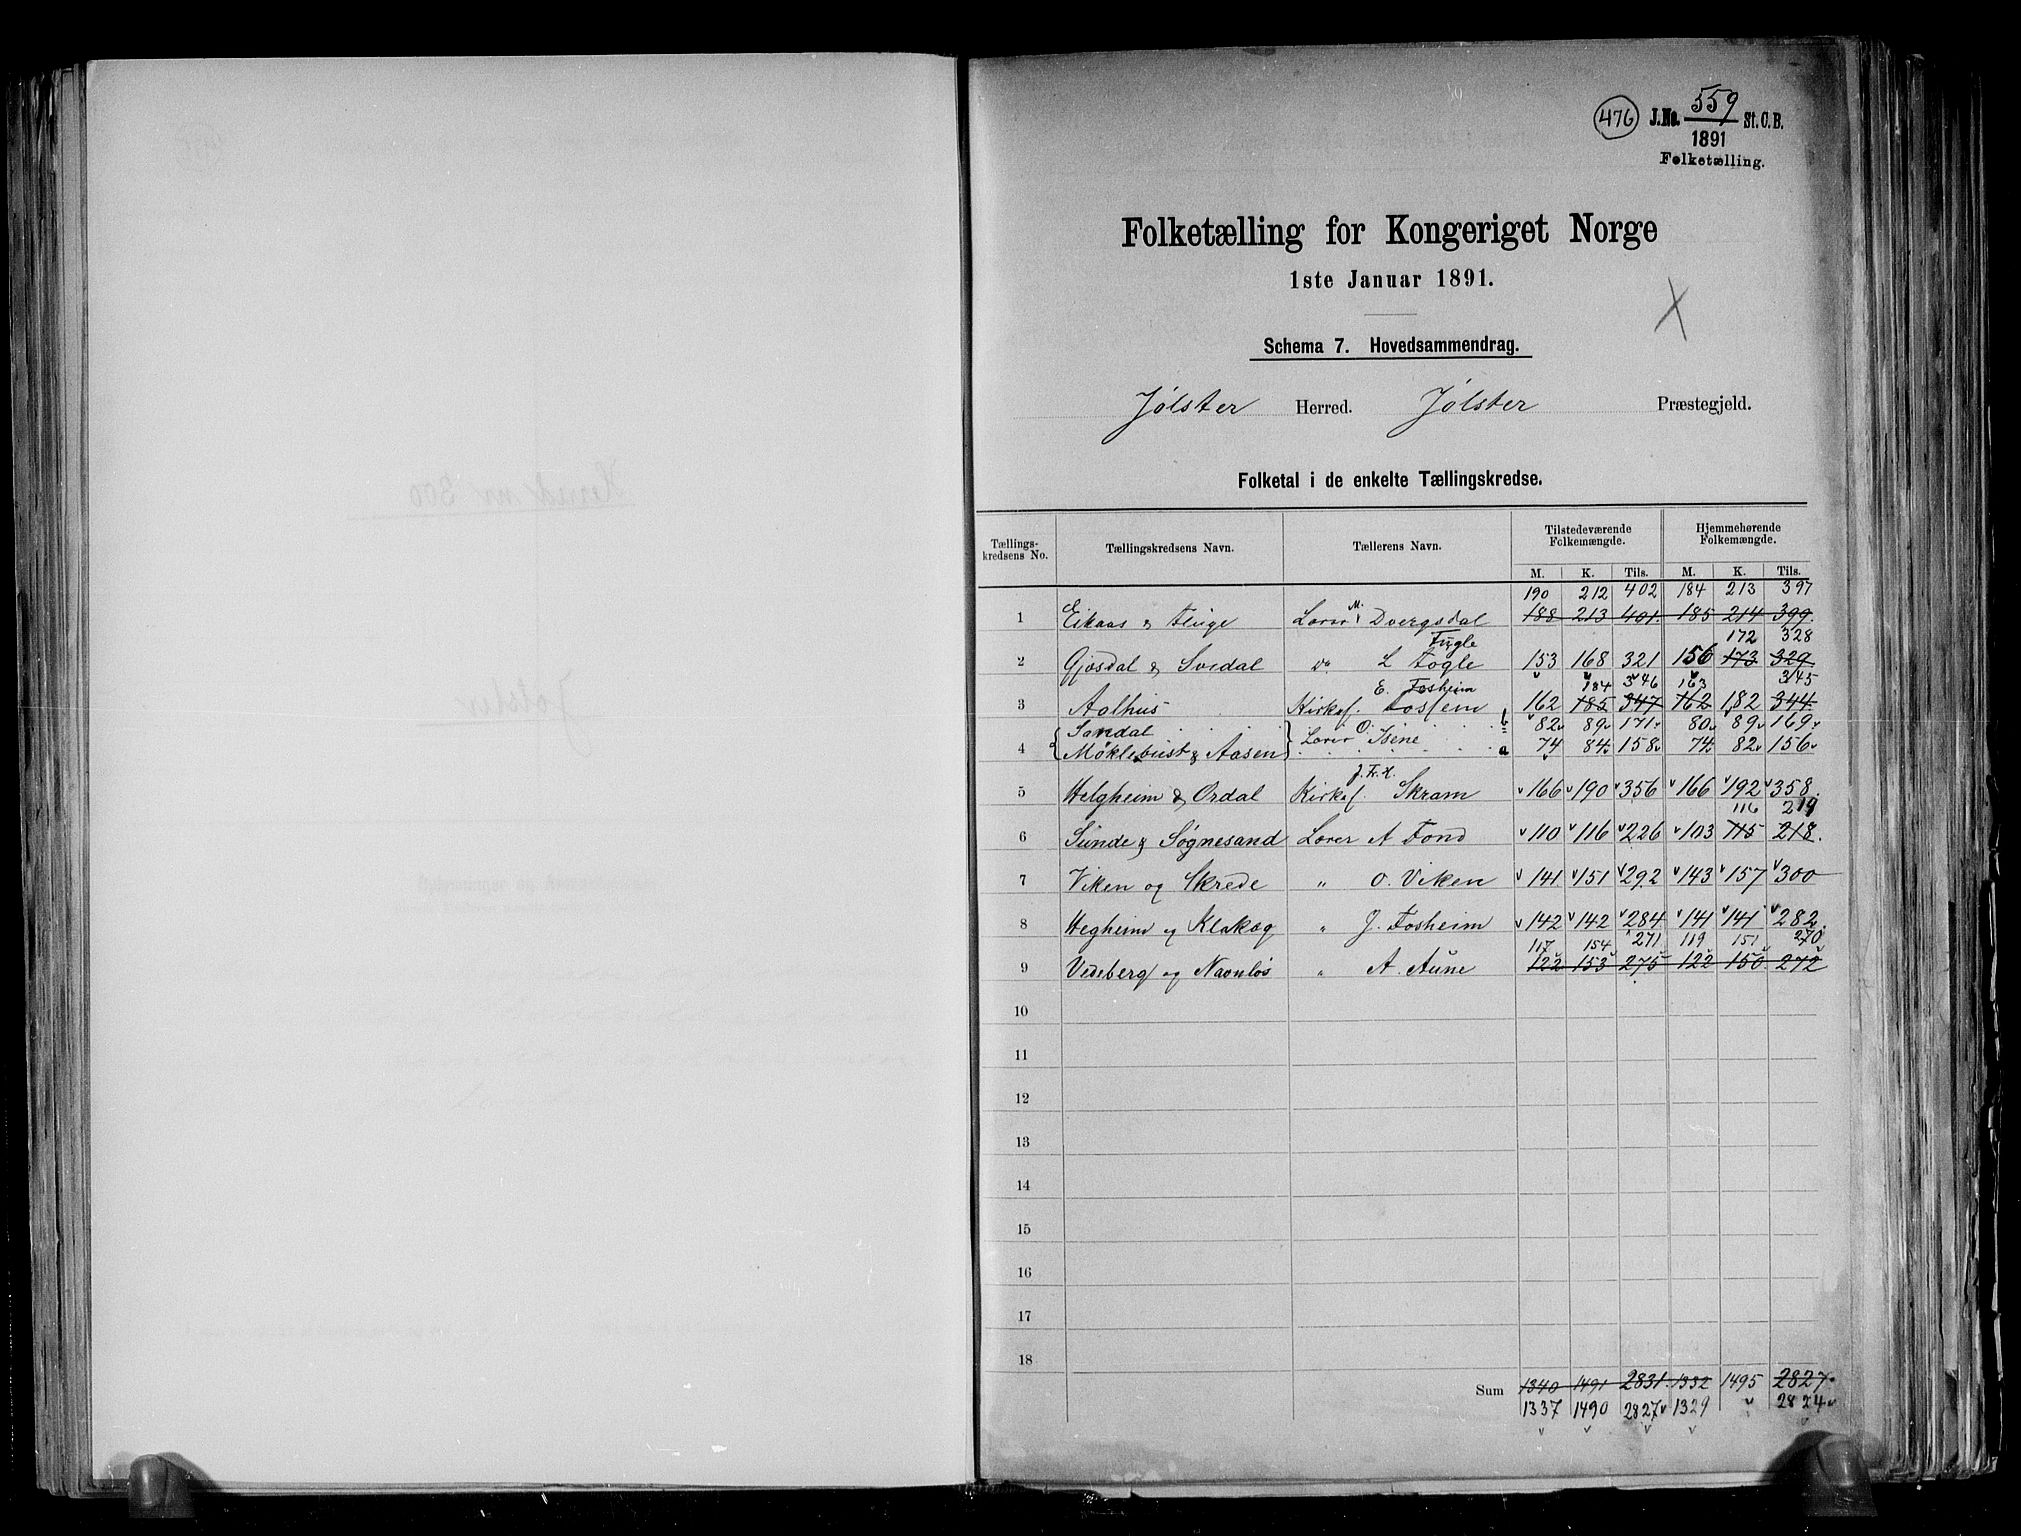 476 J.No. 559 St.C.B.
1891
Folketælling.
Folketælling for Kongeriget Norge
1ste Januar 1891.
Schema 7. Hovedsammendrag.
Jølster Herred. Jølster Præstegjeld.
Folketal i de enkelte Tællingskredse.
Tællings-kredsens No. Tællingskredsens Navn. Tællerens Navn. Tilstedeværende Folkemængde. Hjemmehørende Folkemængde.
M. K. Tils. M. K. Tils.
190 212 402 184 213 397
1 Eikaas & Fluge Lærer M. Dvergsdal 188 213 401. 185 214 399.
Fugle 172 328
2 Gjøsdal & Svidal do L Fogle 153 168 321 156 173 329
E. Fosheim 184 346 163 345
3 Aalhus Kirkes. Fossem 162 185 347 162 182 344
Sandal b 82 89 171 80 89 169
4 Møklebust & Aasen Lærer O. Isene a 74 84 158 74 82 156
J. Fr. H.
5 Helgheim & Ordal Kirkes. Skram 166 190 356 166 192 358
116 219
6 Sunde & Søgnesand Lærer A Fond 110 116 226 103 115 218.
7 Viken og Skrede " O. Viken 141 151 292 143 157 300
8 Hegheim og Klakeg " J. Fosheim 142 142 284 141 141 282
117 154 271 119 151 270
9 Vedeberg og Navnløs " A Aune 122 153 275 122 150 272
10
11
12
13
14
15
16
17
18
Sum 1340 1491 2831 1332 1495 2827
1337 1490 2827 1329 2824
Herred nr 300
Jølster